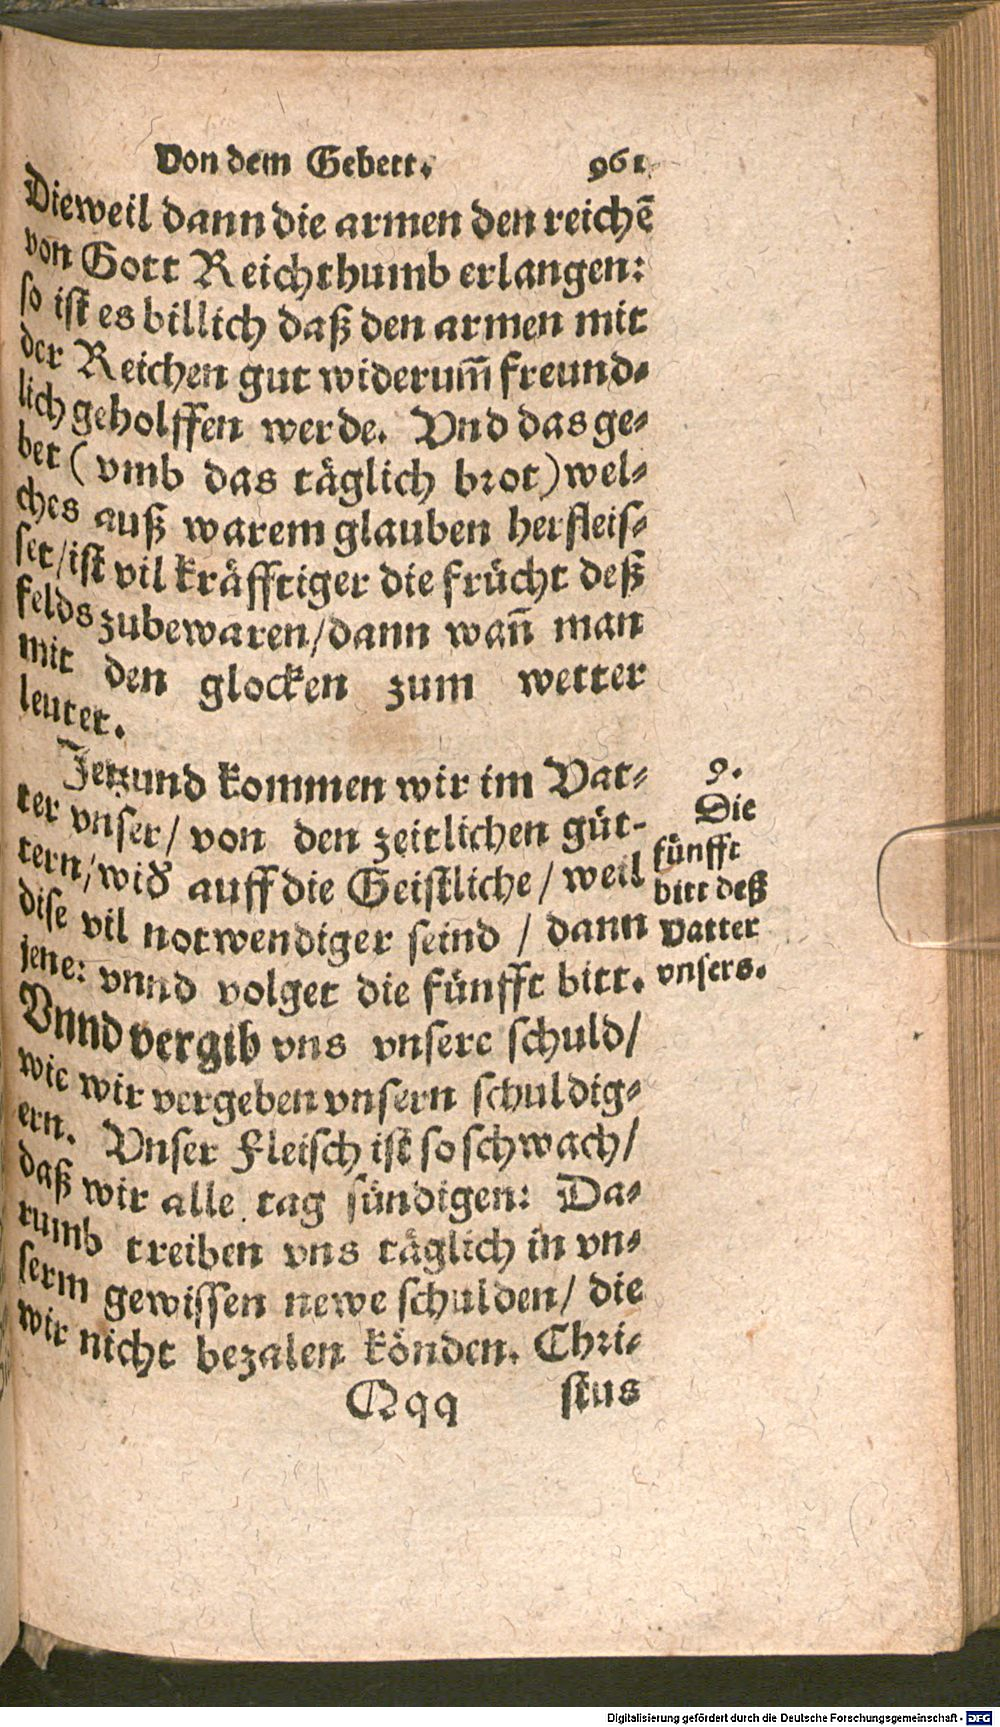 Von dem Gebett. 961
Dieweil dann die armen den reichē
von Gott Reichthumb erlangen:
so ist es billich daß den armen mit
der Reichen gut widerum̄ freund-
lich geholffen werde. Vnd das ge-
bet (vmb das täglich brot) wel-
ches auß warem glauben herfleis-
set/ist vil kräfftiger die frücht deß
felds zubewaren/dann wañ man
mit den glocken zum wetter
leutet.
Jetzund kommen wir im Vat-
ter vnser/ von den zeitlichen güt-
tern/wid' auff die Geistliche/ weil
dise vil notwendiger seind / dann
jene: vnnd volget die fünfft bitt.
Vnnd vergib vns vnsere schuld/
wie wir vergeben vnsern schuldig-
ern. Vnser Fleisch ist so schwach/
daß wir alle tag sündigen: Da-
rumb treiben vns täglich in vn-
serm gewissen newe schulden/ die
wir nicht bezalen könden. Chri-
Qqq stus
9.
Die
fünfft
bitt deß
Vatter
vnsers.
Digitalisierung gefördert durch die Deutsche Forschungsgemeinschaft - DFG